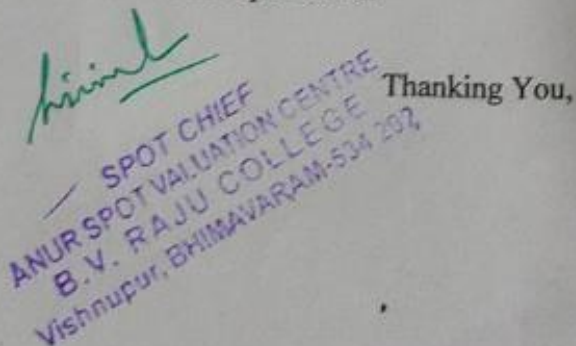 Thanking You,
SPOT CHIEF
ANUR SPOT VALUATION CENTRE
B.V. RAJU COLLEGE
Vishnupur, BHIMAVARAM-534 202